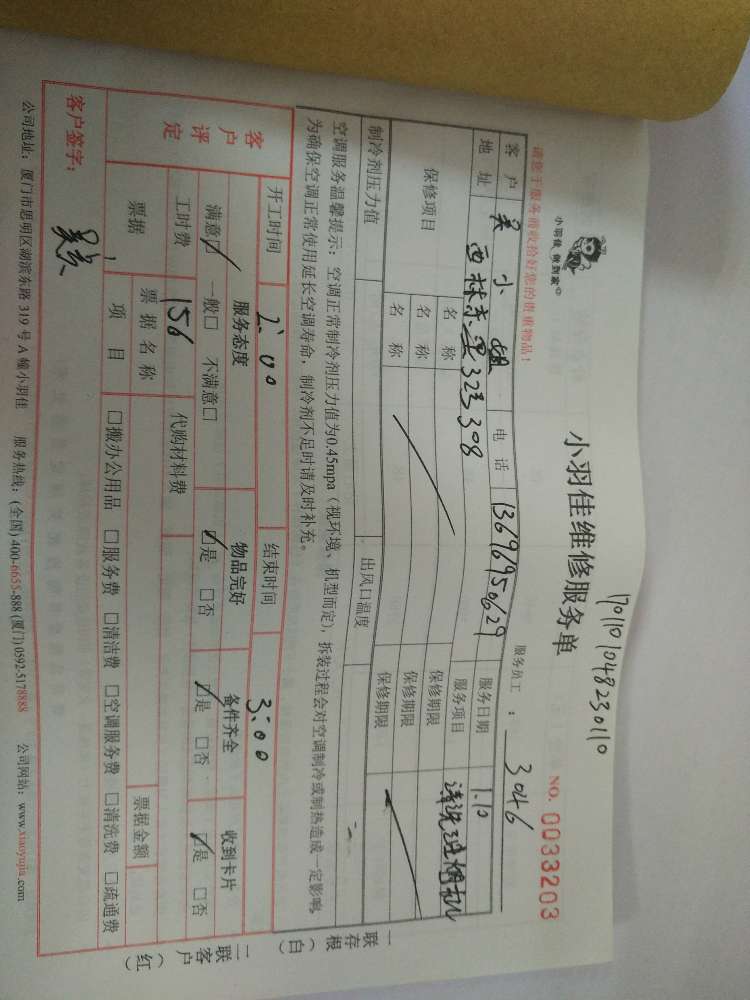 1701101048230110
小羽佳 做到家
小羽佳维修服务单
NO. 0033203
请您于服务前收拾好您的贵重物品!
服务员工 : 3046
客户 吴小姐 电话 13696950629 服务日期 1.10
地址 西林东里323 308 服务项目 清洗油烟机
保修项目 名称 保修期限
名称 保修期限
名称 保修期限
制冷剂压力值 出风口温度
空调服务温馨提示:空调正常制冷剂压力值为0.45mpa(视环境、机型而定),拆装过程会对空调制冷或制热造成一定影响,
为确保空调正常使用延长空调寿命,制冷剂不足时请及时补充。
一存根(白)
联
二客户(红)
联
开工时间 2:00 结束时间 3:00
客户评定 服务态度 物品完好 备件齐全 收到卡片
满意☑ 一般□ 不满意□ ☑是 □否 ☑是 □否 ☑是 □否
工时费 156 代购材料费
票据 票据名称 票据金额
项目 □搬办公用品 □服务费 □清洁费 □空调服务费 □清洗费 □疏通费
客户签字:
公司地址:厦门市思明区湖滨东路319号A幢小羽佳 服务热线:(全国)400-6655-888 (厦门)0592-5178888 公司网站:www.xiaoyujia.com